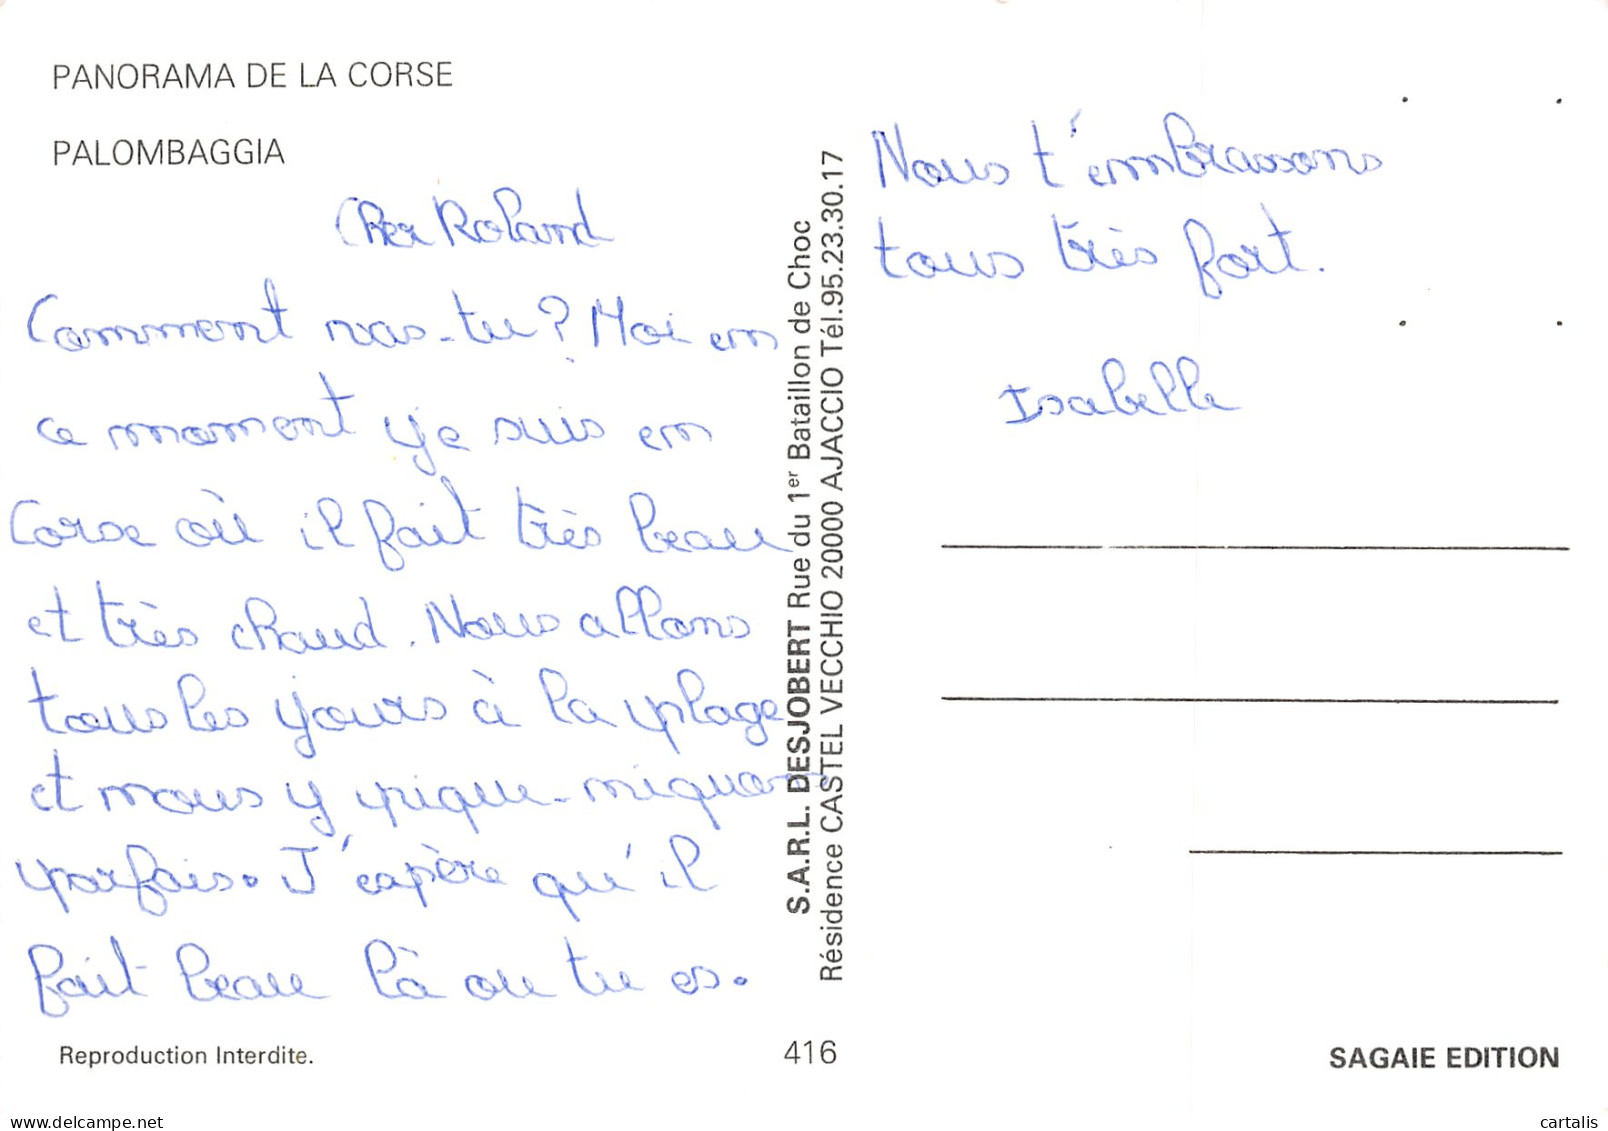 PANORAMA DE LA CORSE
PALOMBAGGIA
Cher Roland
Comment vas-tu? Moi en
ce moment je suis en
Corse où il fait très beau
et très chaud. Nous allons
tous les jours à la plage
et nous y pique-niquons
parfois. J'espère qu'il
fait beau là ou tu es.
Nous t'embrassons
tous très fort.
Isabelle
S.A.R.L. DESJOBERT Rue du 1er Bataillon de Choc
Résidence CASTEL VECCHIO 20000 AJACCIO Tél.95.23.30.17
Reproduction Interdite.
416
SAGAIE EDITION
the-postcard-store.com
cartalis